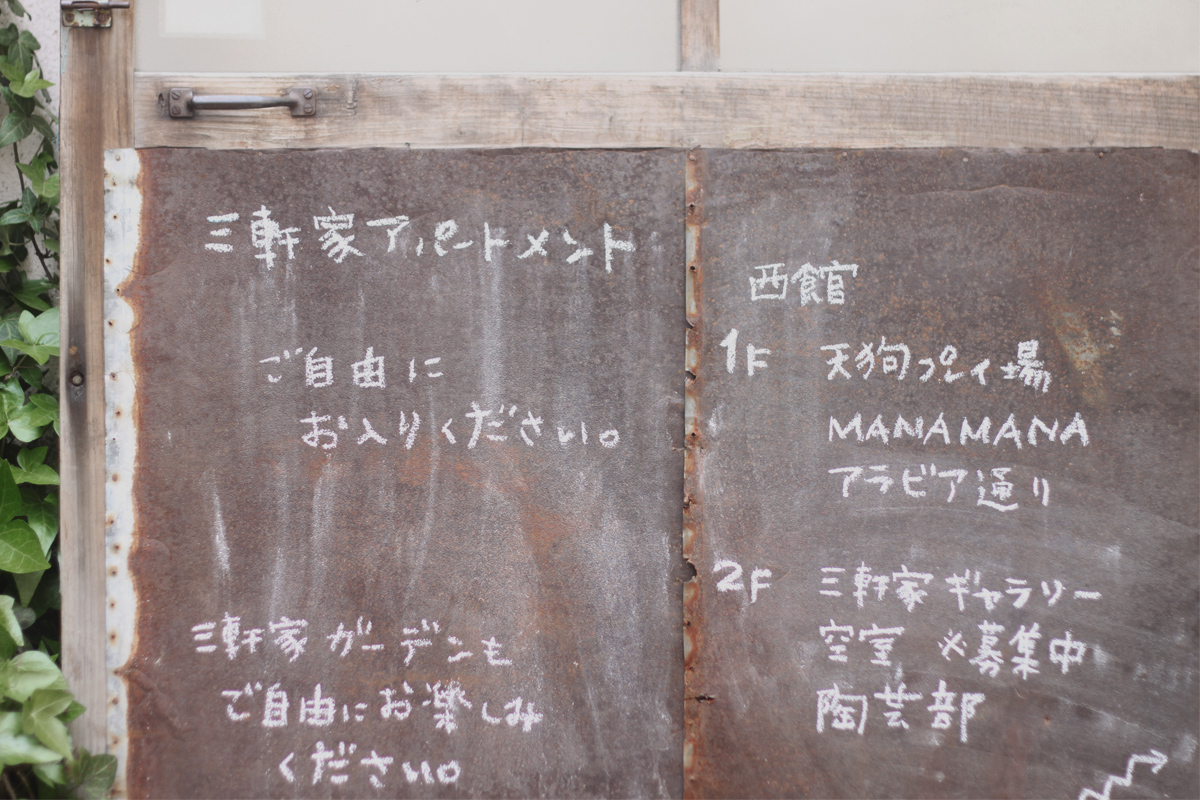 三軒家アパートメント
ご自由に
お入りください。
三軒家ガーデンも
ご自由にお楽しみ
ください。
西館
1F 天狗プレイ場
MANAMANA
アラビア通り
2F 三軒家ギャラリー
空室 ※募集中
陶芸部